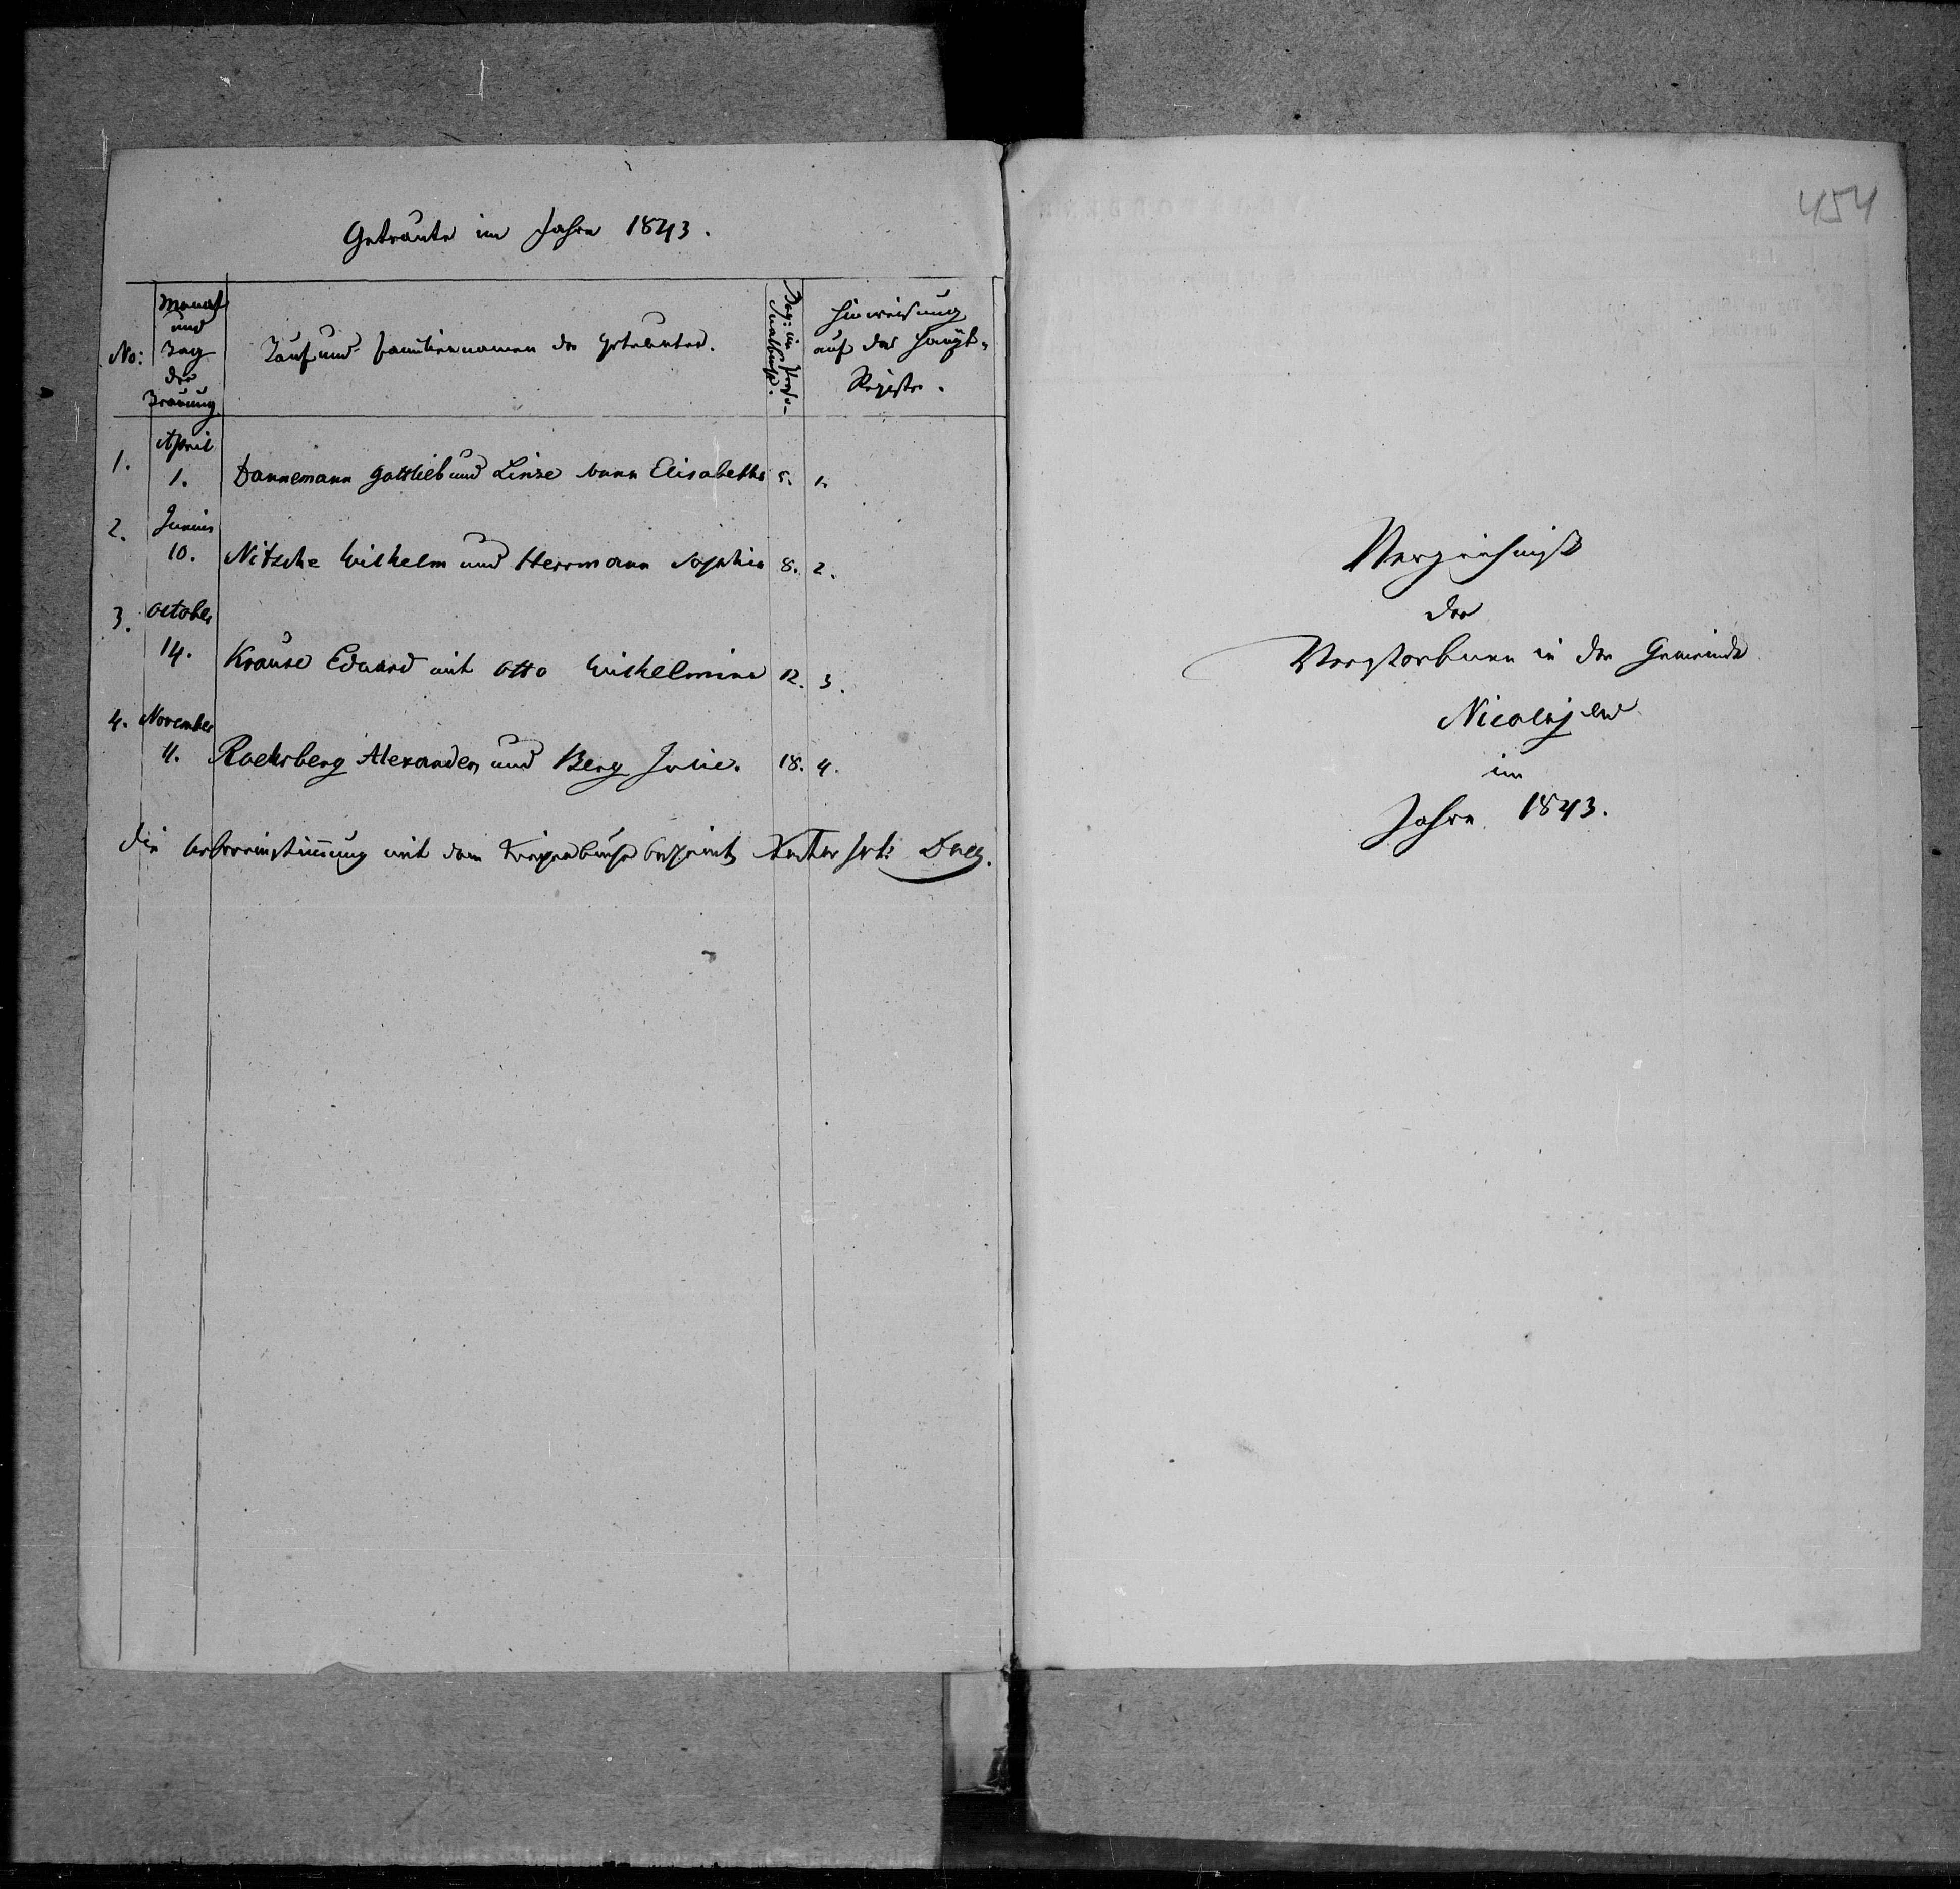 Getraute im Jahre 1843.
No: Monat und Tag der Trauung Tauf und Familiennamen der Getrauten. Pag: im Perso- nalbuch. Hinweisung auf das Haupt- Register.
1. April 1. Dannemann Gottlieb und Linse Anna Elisabetha 5. 1.
2. Junius 10. Nitzche Wilhelm und Herrmann Sophia 8. 2.
3. October 14. Krause Eduard mit Otto Wilhelmine 12. 3.
4. November 11. Roehrberg Alexander und Berg Julie. 18. 4.
Die Uebereinstimmung mit dem Kirchenbuche bescheinigt Pastor
454
Verzeichniß
der
Verstorbenen in der Gemeinde
Nicolajew
im
Jahre 1843.